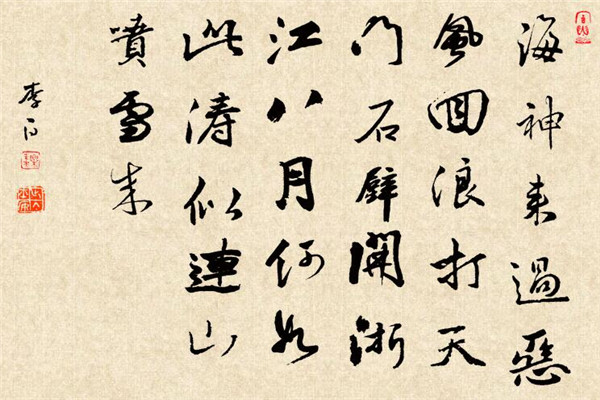 海神来過惡
風回浪打天
门石壁開浙
江八月何如
此涛似連山
噴雪来
李白